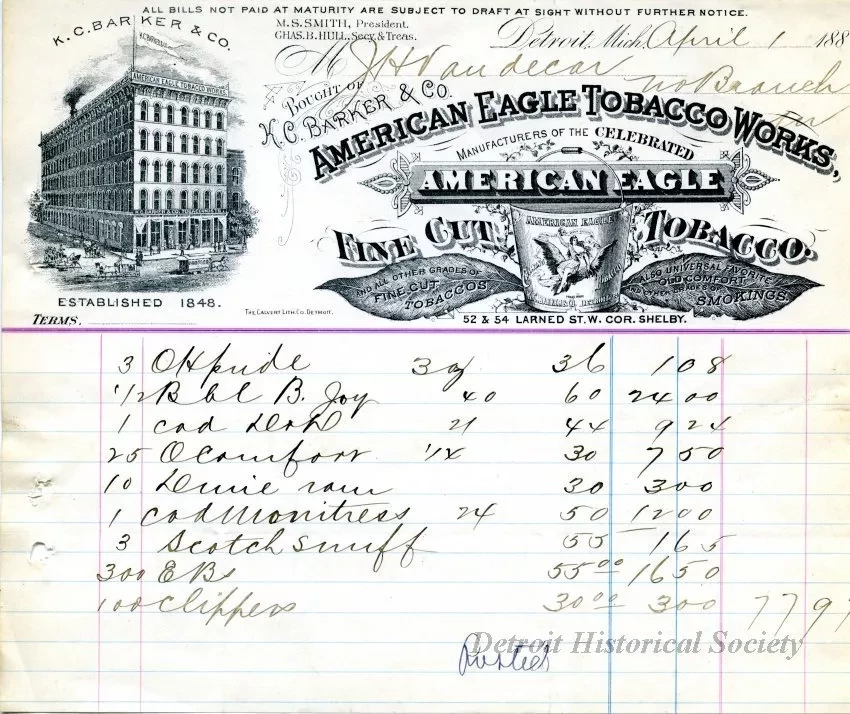 ALL BILLS NOT PAID AT MATURITY ARE SUBJECT TO DRAFT AT SIGHT WITHOUT FURTHER NOTICE.
K. C. BARKER & CO.
M. S. SMITH, President.
CHAS. B. HULL, Secy. & Treas.
Detroit, Mich. April 1 188
M J H Vandecar
no Branch
Bought of
K. C. BARKER & CO.
AMERICAN EAGLE TOBACCO WORKS,
AMERICAN EAGLE TOBACCO WORKS
MANUFACTURERS OF THE CELEBRATED
AMERICAN EAGLE
AMERICAN EAGLE
FINE CUT TOBACCO.
AND ALL OTHER GRADES OF
FINE CUT
TOBACCOS
ALSO UNIVERSAL FAVORITE
OLD COMFORT
SMOKINGS.
ESTABLISHED 1848.
THE CALVERT LITH. CO. DETROIT.
52 & 54 LARNED ST. W. COR. SHELBY.
TERMS.
3 OK pride 3oz 36 108
1/2 Bbl B. Joy 40 60 24 00
1 cad 21 44 9 24
25 O comfort 1/4 30 7 50
10 30 300
1 cad 24 50 12 00
3 Scotch Snuff 55 1 65
300 EBs 55 00 16 50
100 Clippers 30 00 300 77 97
Detroit Historical Society
Posted